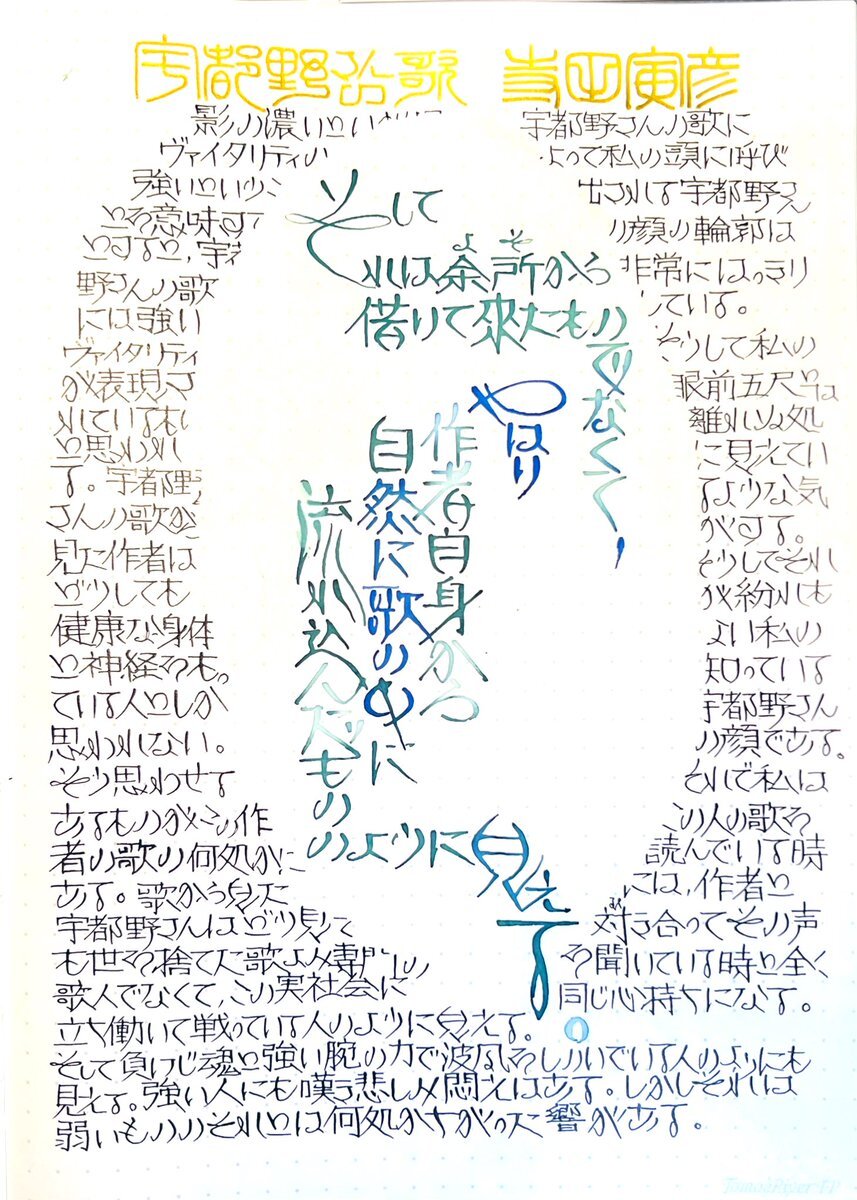 宇都野さんの歌　寺田寅彦
宇都野さんの歌に
よって私の頭に呼び
出される宇都野さん
の顔の輪郭は
非常にはっきり
している。
そうして私の
眼前五尺とは
離れぬ処
に見えてい
るような気
がする。
そうしてそれ
が紛れも
ない私の
知っている
宇都野さん
の顔である。
それで私は
この人の歌を
読んでいる時
には、作者と
対い合ってその声
を聞いている時と全く
同じ心持ちになる。
影の濃いという
ヴァイタリティの
強いというこ
とを意味する
とすると、宇都
野さんの歌
には強い
ヴァイタリティ
が表現さ
れているも
と思われ
る。宇都野
さんの歌から
見た作者は
どうしても
健康な身体
と神経をもっ
ている人としか
思われない。
そう思わせる
あるものがこの作
者の歌の何処かに
ある。歌から見た
宇都野さんはどう見て
も世を捨てた歌よみ専門の
歌人でなくて、この実社会に
立ち働いて戦っている人のように見える。
そして負けじ魂と強い腕の力で波風をしのいでいる人のようにも
見える。強い人にも嘆き悲しみ悶えはある。しかしそれは
弱いもののそれとは何処かちがった響がある。
そして
それは余所から
よそ
借りて来たもの
でなくて、
やはり
作者自身から
自然に歌の中に
流れ込んだもの
のように見える。